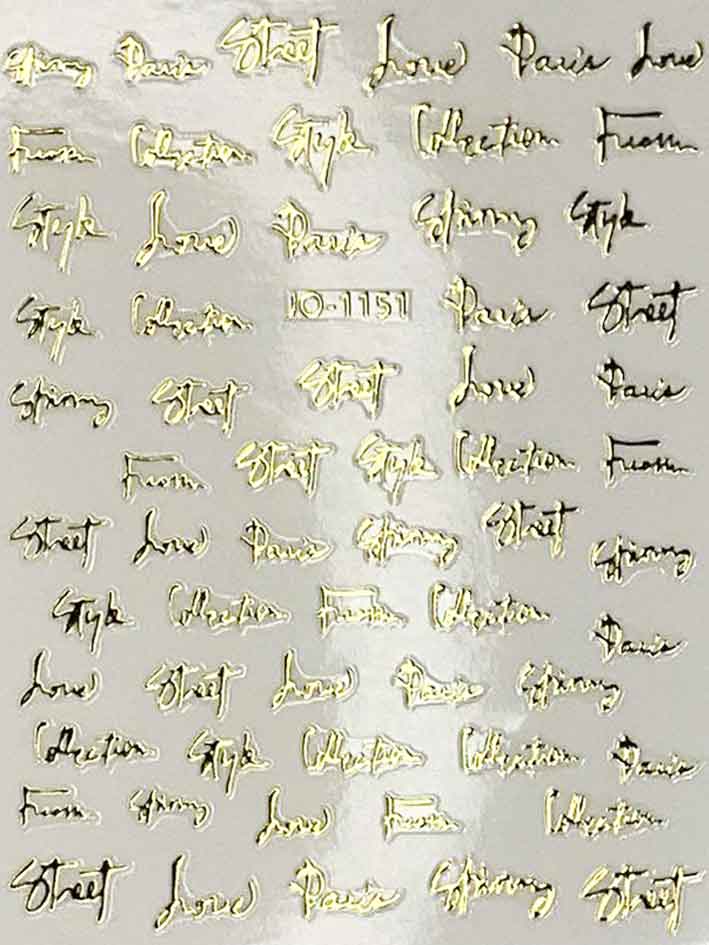 Spring Paris Street Love Paris Love
From Collection Style Collection From
Style Love Paris Spring Style
Style Collection JO-1151 Paris Street
Spring Street Street Love Paris
From Street Style Collection From
Street Love Paris Spring Street Spring
Style Collection From Collection Paris
Love Street Love Paris Spring
Collection Style Collection Collection Paris
From Spring Love From Collection
Street Love Paris Spring Street